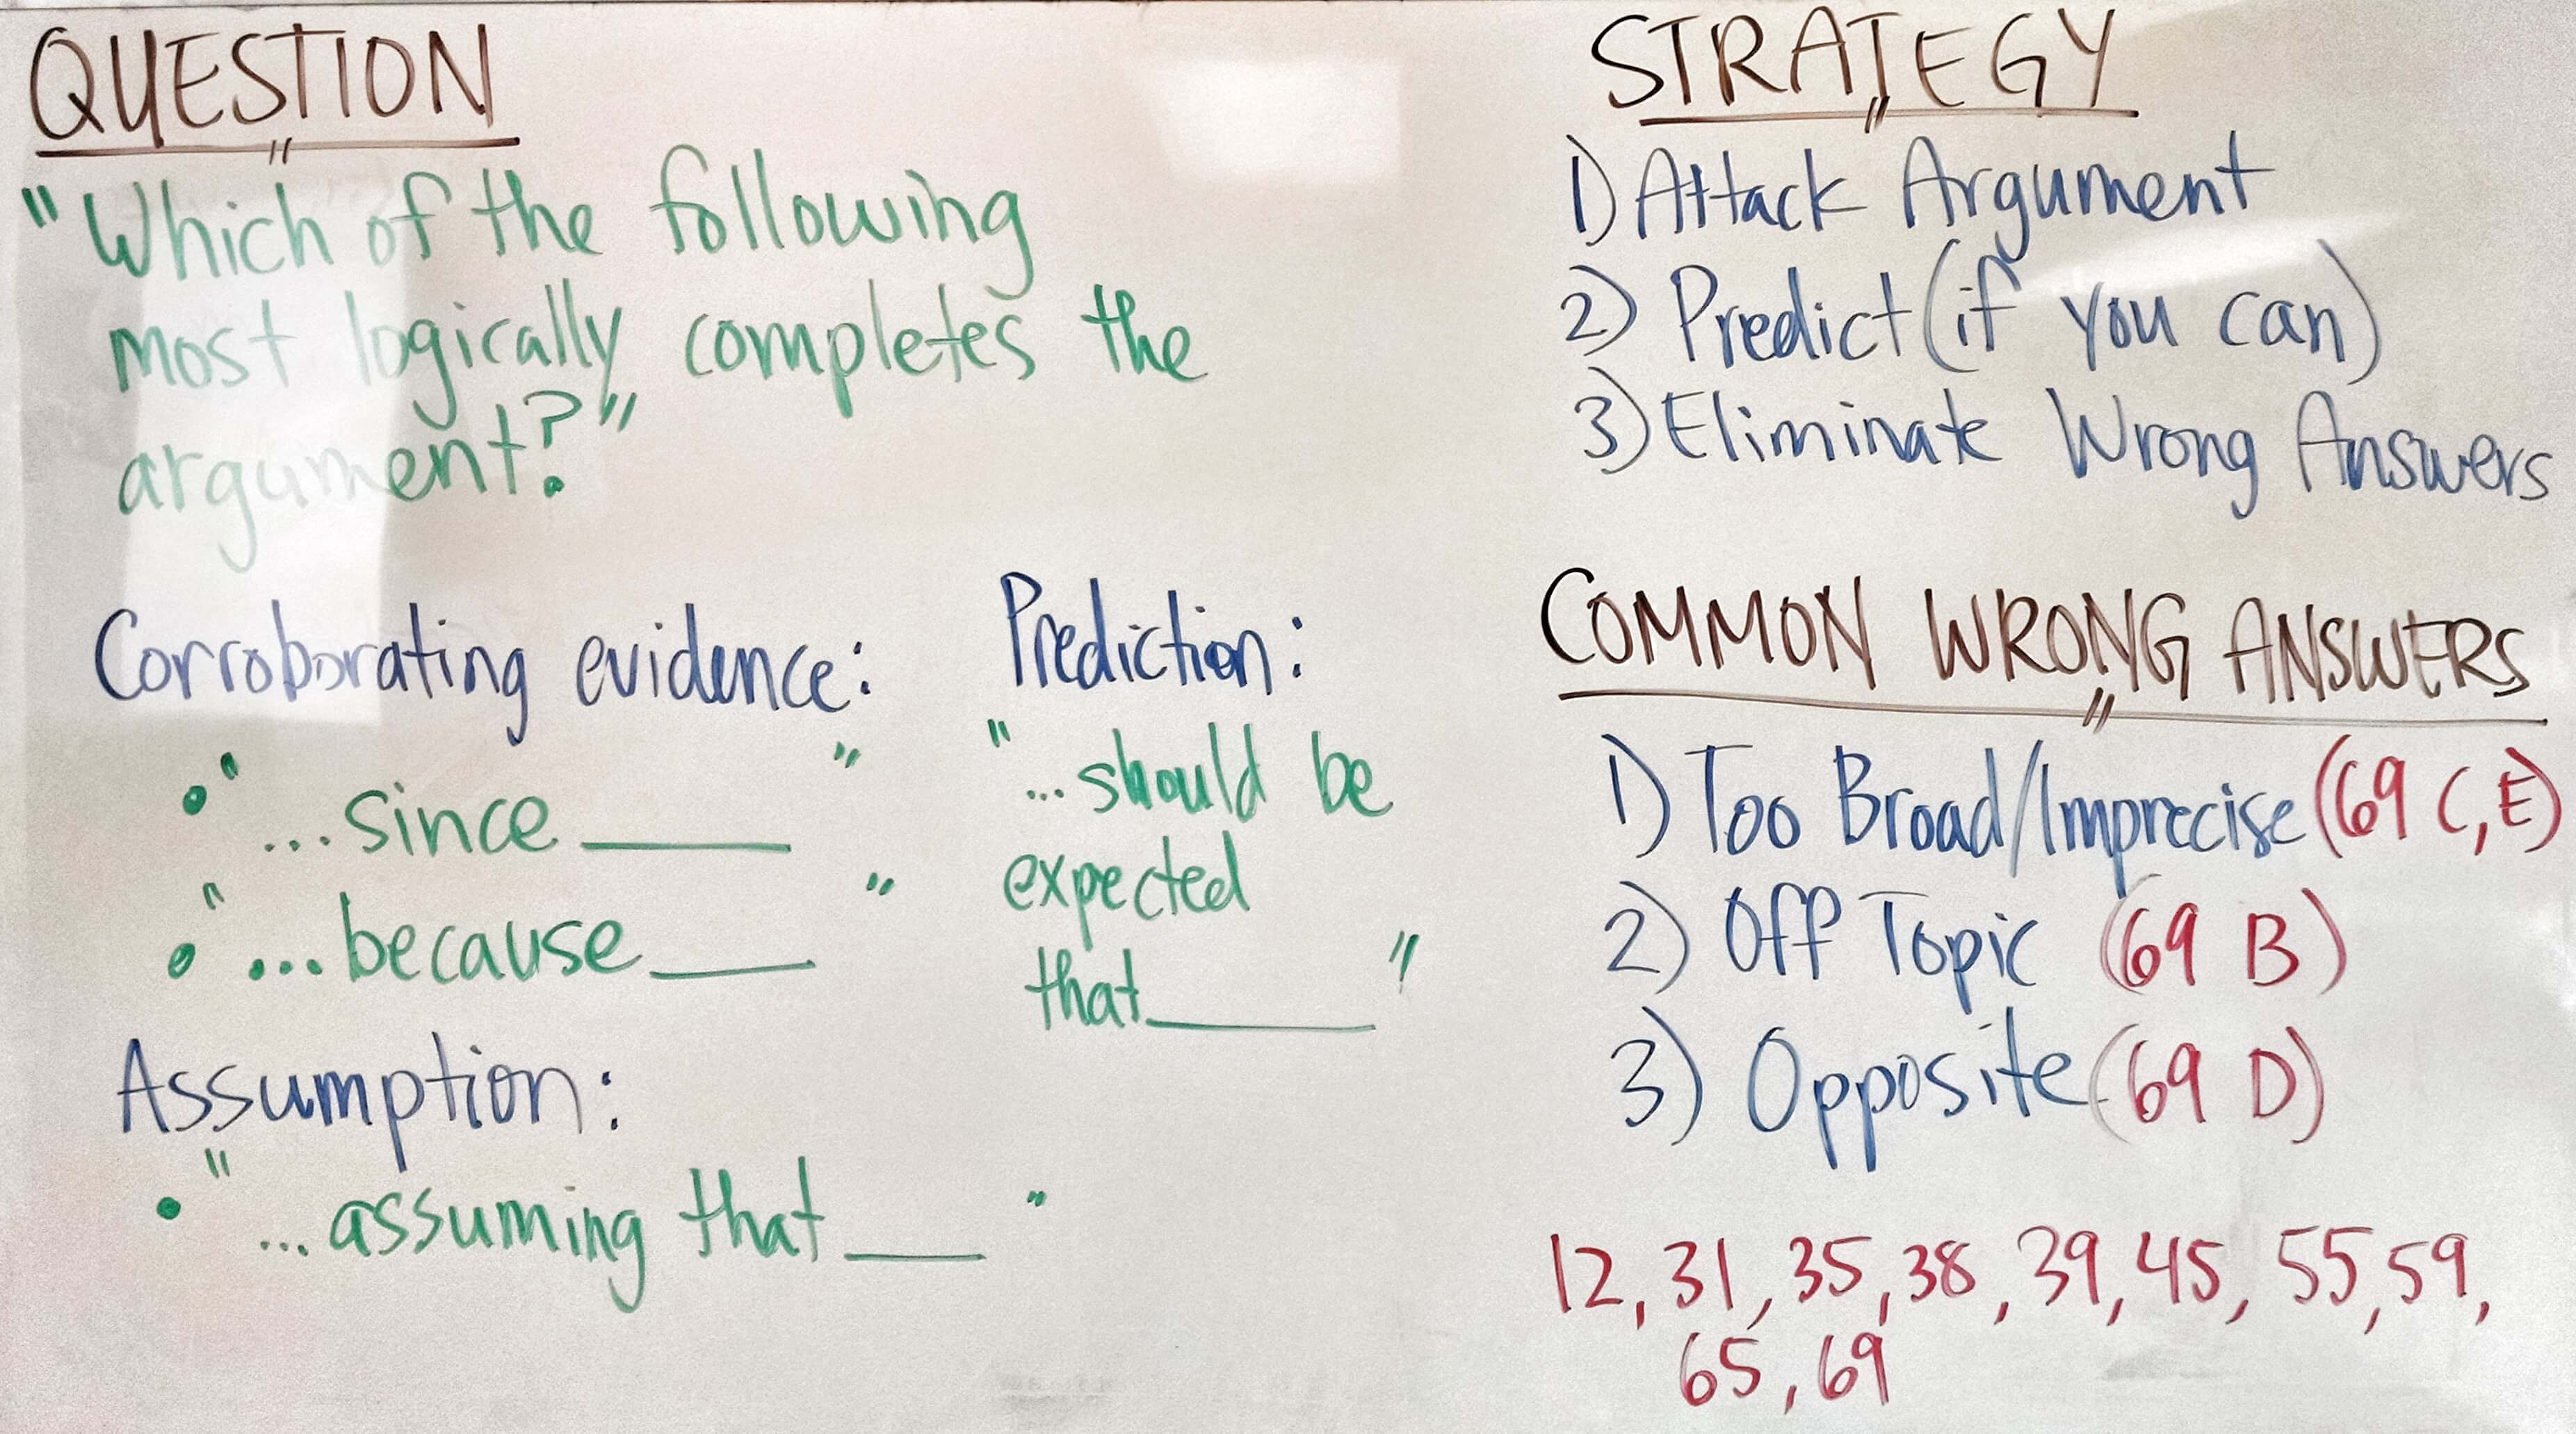 QUESTION
"Which of the following
most logically completes the
argument?"
Corroborating evidence:
• "...since ____"
• "...because ____"
Assumption:
• "...assuming that ____"
Prediction:
"...should be
expected
that ____"
STRATEGY
1) Attack Argument
2) Predict (if you can)
3) Eliminate Wrong Answers
COMMON WRONG ANSWERS
1) Too Broad/Imprecise (69 C, E)
2) Off Topic (69 B)
3) Opposite (69 D)
12, 31, 35, 38, 39, 45, 55, 59,
65, 69